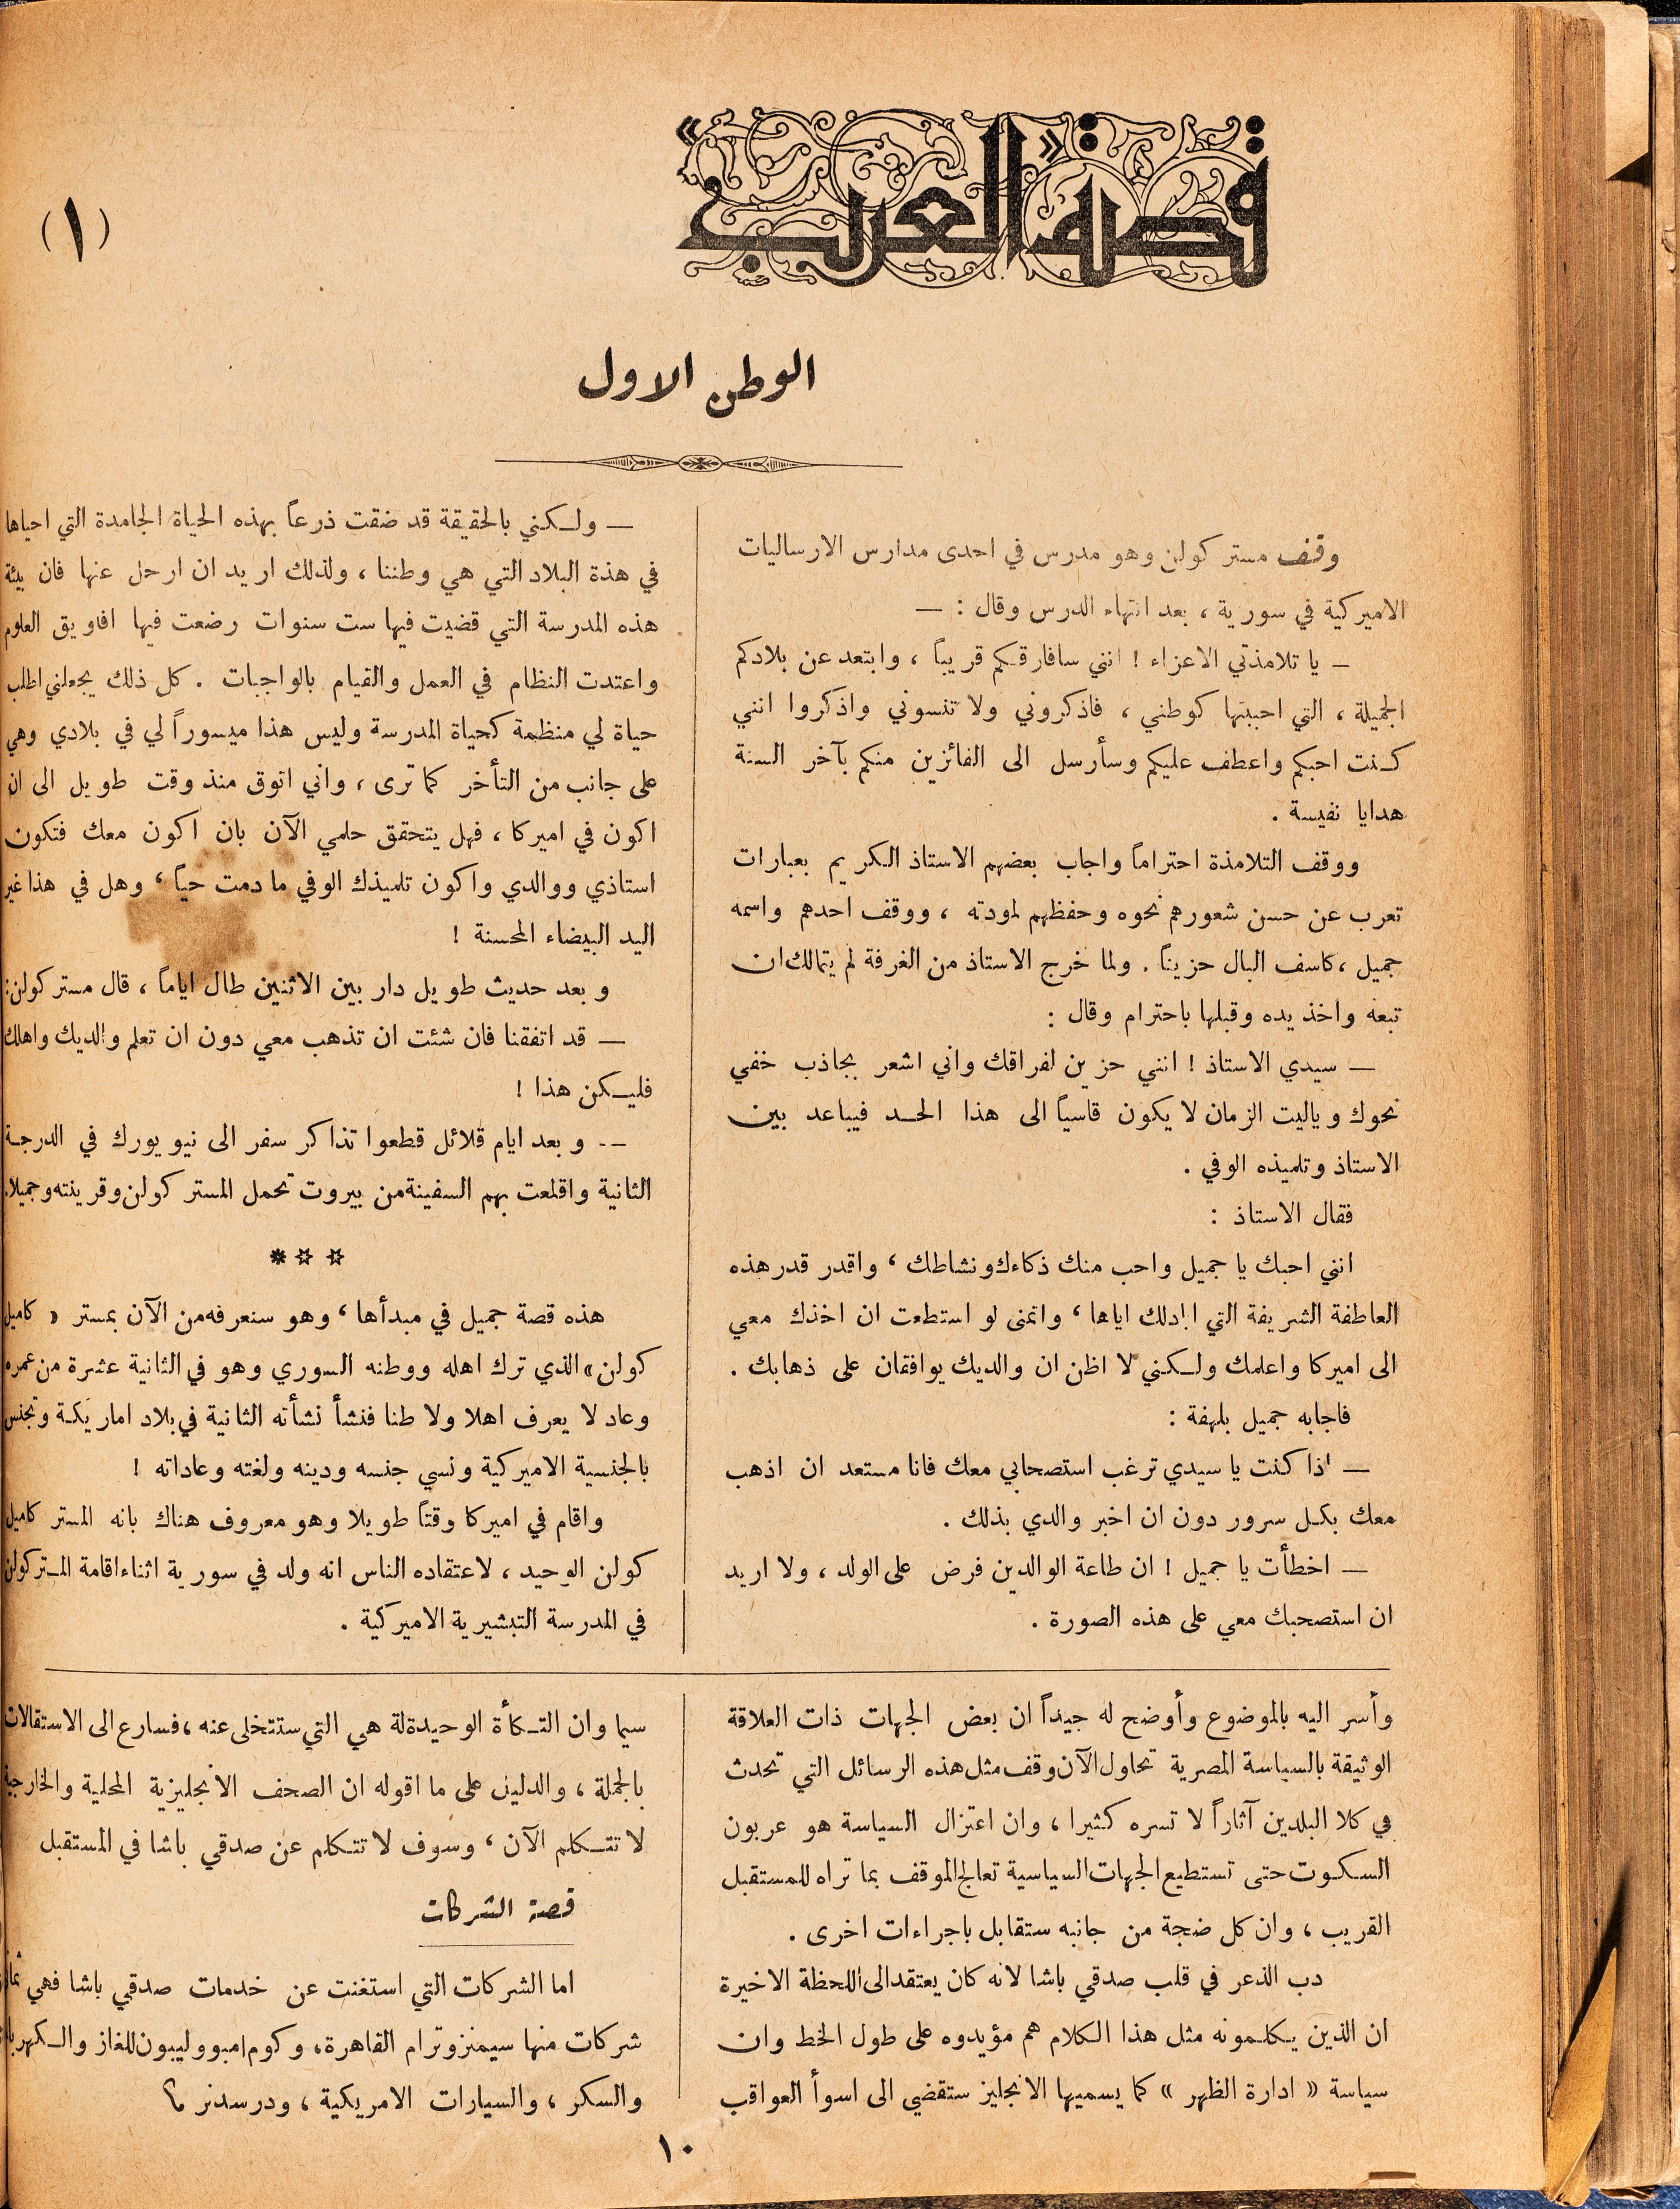 قصة «العرب»
(١)
الوطن الاول
وقف مستر كولن وهو مدرس في احدى مدارس الارساليات
الاميركية في سورية ، بعد انتهاء الدرس وقال : —
— يا تلامذتي الاعزاء ! انني سافارقكم قريباً ، وابتعد عن بلادكم
الجميلة ، التي احببتها كوطني ، فاذكروني ولا تنسوني واذكروا انني
كنت احبكم واعطف عليكم وسأرسل الى الفائزين منكم بآخر السنة
هدايا نفيسة .
ووقف التلامذة احتراماً واجاب بعضهم الاستاذ الكريم بعبارات
تعرب عن حسن شعورهم نحوه وحفظهم لمودته ، ووقف احدهم واسمه
جميل ، كاسف البال حزيناً . ولما خرج الاستاذ من الغرفة لم يتمالك ان
تبعه واخذ يده وقبلها باحترام وقال :
— سيدي الاستاذ ! انني حزين لفراقك واني اشعر بجاذب خفي
نحوك وياليت الزمان لا يكون قاسياً الى هذا الحد فيباعد بين
الاستاذ وتلميذه الوفي .
فقال الاستاذ :
انني احبك يا جميل واحب منك ذكاءك ونشاطك ، واقدر قدر هذه
العاطفة الشريفة التي ابادلك اياها ، واتمنى لو استطعت ان اخذك معي
الى اميركا واعلمك ولكني لا اظن ان والديك يوافقان على ذهابك .
فاجابه جميل بلهفة :
— اذا كنت يا سيدي ترغب استصحابي معك فانا مستعد ان اذهب
معك بكل سرور دون ان اخبر والدي بذلك .
— اخطأت يا جميل ! ان طاعة الوالدين فرض على الولد ، ولا اريد
ان استصحبك معي على هذه الصورة .
— ولكني بالحقيقة قد ضقت ذرعاً بهذه الحياة الجامدة التي احياها
في هذة البلاد التي هي وطننا ، ولذلك اريد ان ارحل عنها فان بيئة
هذه المدرسة التي قضيت فيها ست سنوات رضعت فيها افاويق العلوم
واعتدت النظام في العمل والقيام بالواجبات . كل ذلك يجعلني اطلب
حياة لي منظمة كحياة المدرسة وليس هذا ميسوراً لي في بلادي وهي
على جانب من التأخر كما ترى ، واني اتوق منذ وقت طويل الى ان
اكون في اميركا ، فهل يتحقق حلمي الآن بان اكون معك فتكون
استاذي ووالدي واكون تلميذك الوفي ما دمت حياً ، وهل في هذا غير
اليد البيضاء المحسنة !
وبعد حديث طويل دار بين الاثنين طال اياماً ، قال مستر كولن:
— قد اتفقنا فان شئت ان تذهب معي دون ان تعلم والديك واهلك
فليكن هذا !
-- وبعد ايام قلائل قطعوا تذاكر سفر الى نيويورك في الدرجة
الثانية واقلعت بهم السفينة من بيروت تحمل المستر كولن وقرينته وجميلا.
☆ ☆ *
هذه قصة جميل في مبدأها ، وهو سنعرفه من الآن بمستر « كاميل
كولن » الذي ترك اهله ووطنه السوري وهو في الثانية عشرة من عمره
وعاد لا يعرف اهلا ولا طنا فنشأ نشأته الثانية في بلاد اماريكة وتجنس
بالجنسية الاميركية ونسي جنسه ودينه ولغته وعاداته !
واقام في اميركا وقتاً طويلا وهو معروف هناك بانه المستر كاميل
كولن الوحيد ، لاعتقاده الناس انه ولد في سورية اثناء اقامة المستر كولن
في المدرسة التبشيرية الاميركية .
وأسر اليه بالموضوع وأوضح له جيداً ان بعض الجهات ذات العلاقة
الوثيقة بالسياسة المصرية تحاول الآن وقف مثل هذه الرسائل التي تحدث
في كلا البلدين آثاراً لا تسره كثيرا ، وان اعتزال السياسة هو عربون
السكوت حتى تستطيع الجهات السياسية تعالج الموقف بما تراه للمستقبل
القريب ، وان كل ضجة من جانبه ستقابل باجراءات اخرى .
دب الذعر في قلب صدقي باشا لانه كان يعتقد الى اللحظة الاخيرة
ان الذين يكلمونه مثل هذا الكلام هم مؤيدوه على طول الخط وان
سياسة « ادارة الظهر » كما يسميها الانجليز ستقضي الى اسوأ العواقب
سيما وان التكأة الوحيدة لة هي التي ستتخلى عنه ، فسارع الى الاستقالات
بالجملة ، والدليل على ما اقوله ان الصحف الانجليزية المحلية والخارجية
لا تتكلم الآن ، وسوف لا تتكلم عن صدقي باشا في المستقبل
قصة الشركات
اما الشركات التي استغنت عن خدمات صدقي باشا فهي
شركات منها سيمنز وترام القاهرة ، وكوم امبو وليبون للغاز والكهرباء
والسكر ، والسيارات الامريكية ، ودرسدنر ؟
١٠